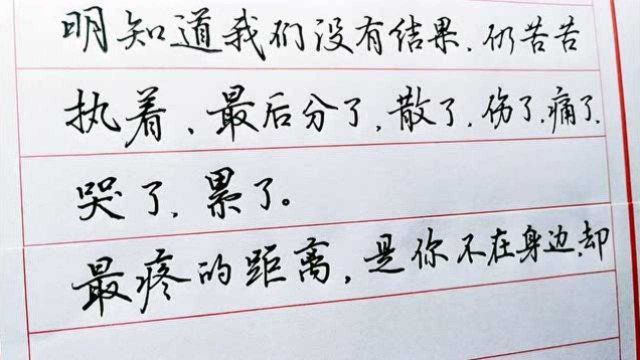 明知道我们没有结果，仍苦苦
执着、最后分了，散了，伤了，痛了，
哭了，累了。
最疼的距离，是你不在身边，却